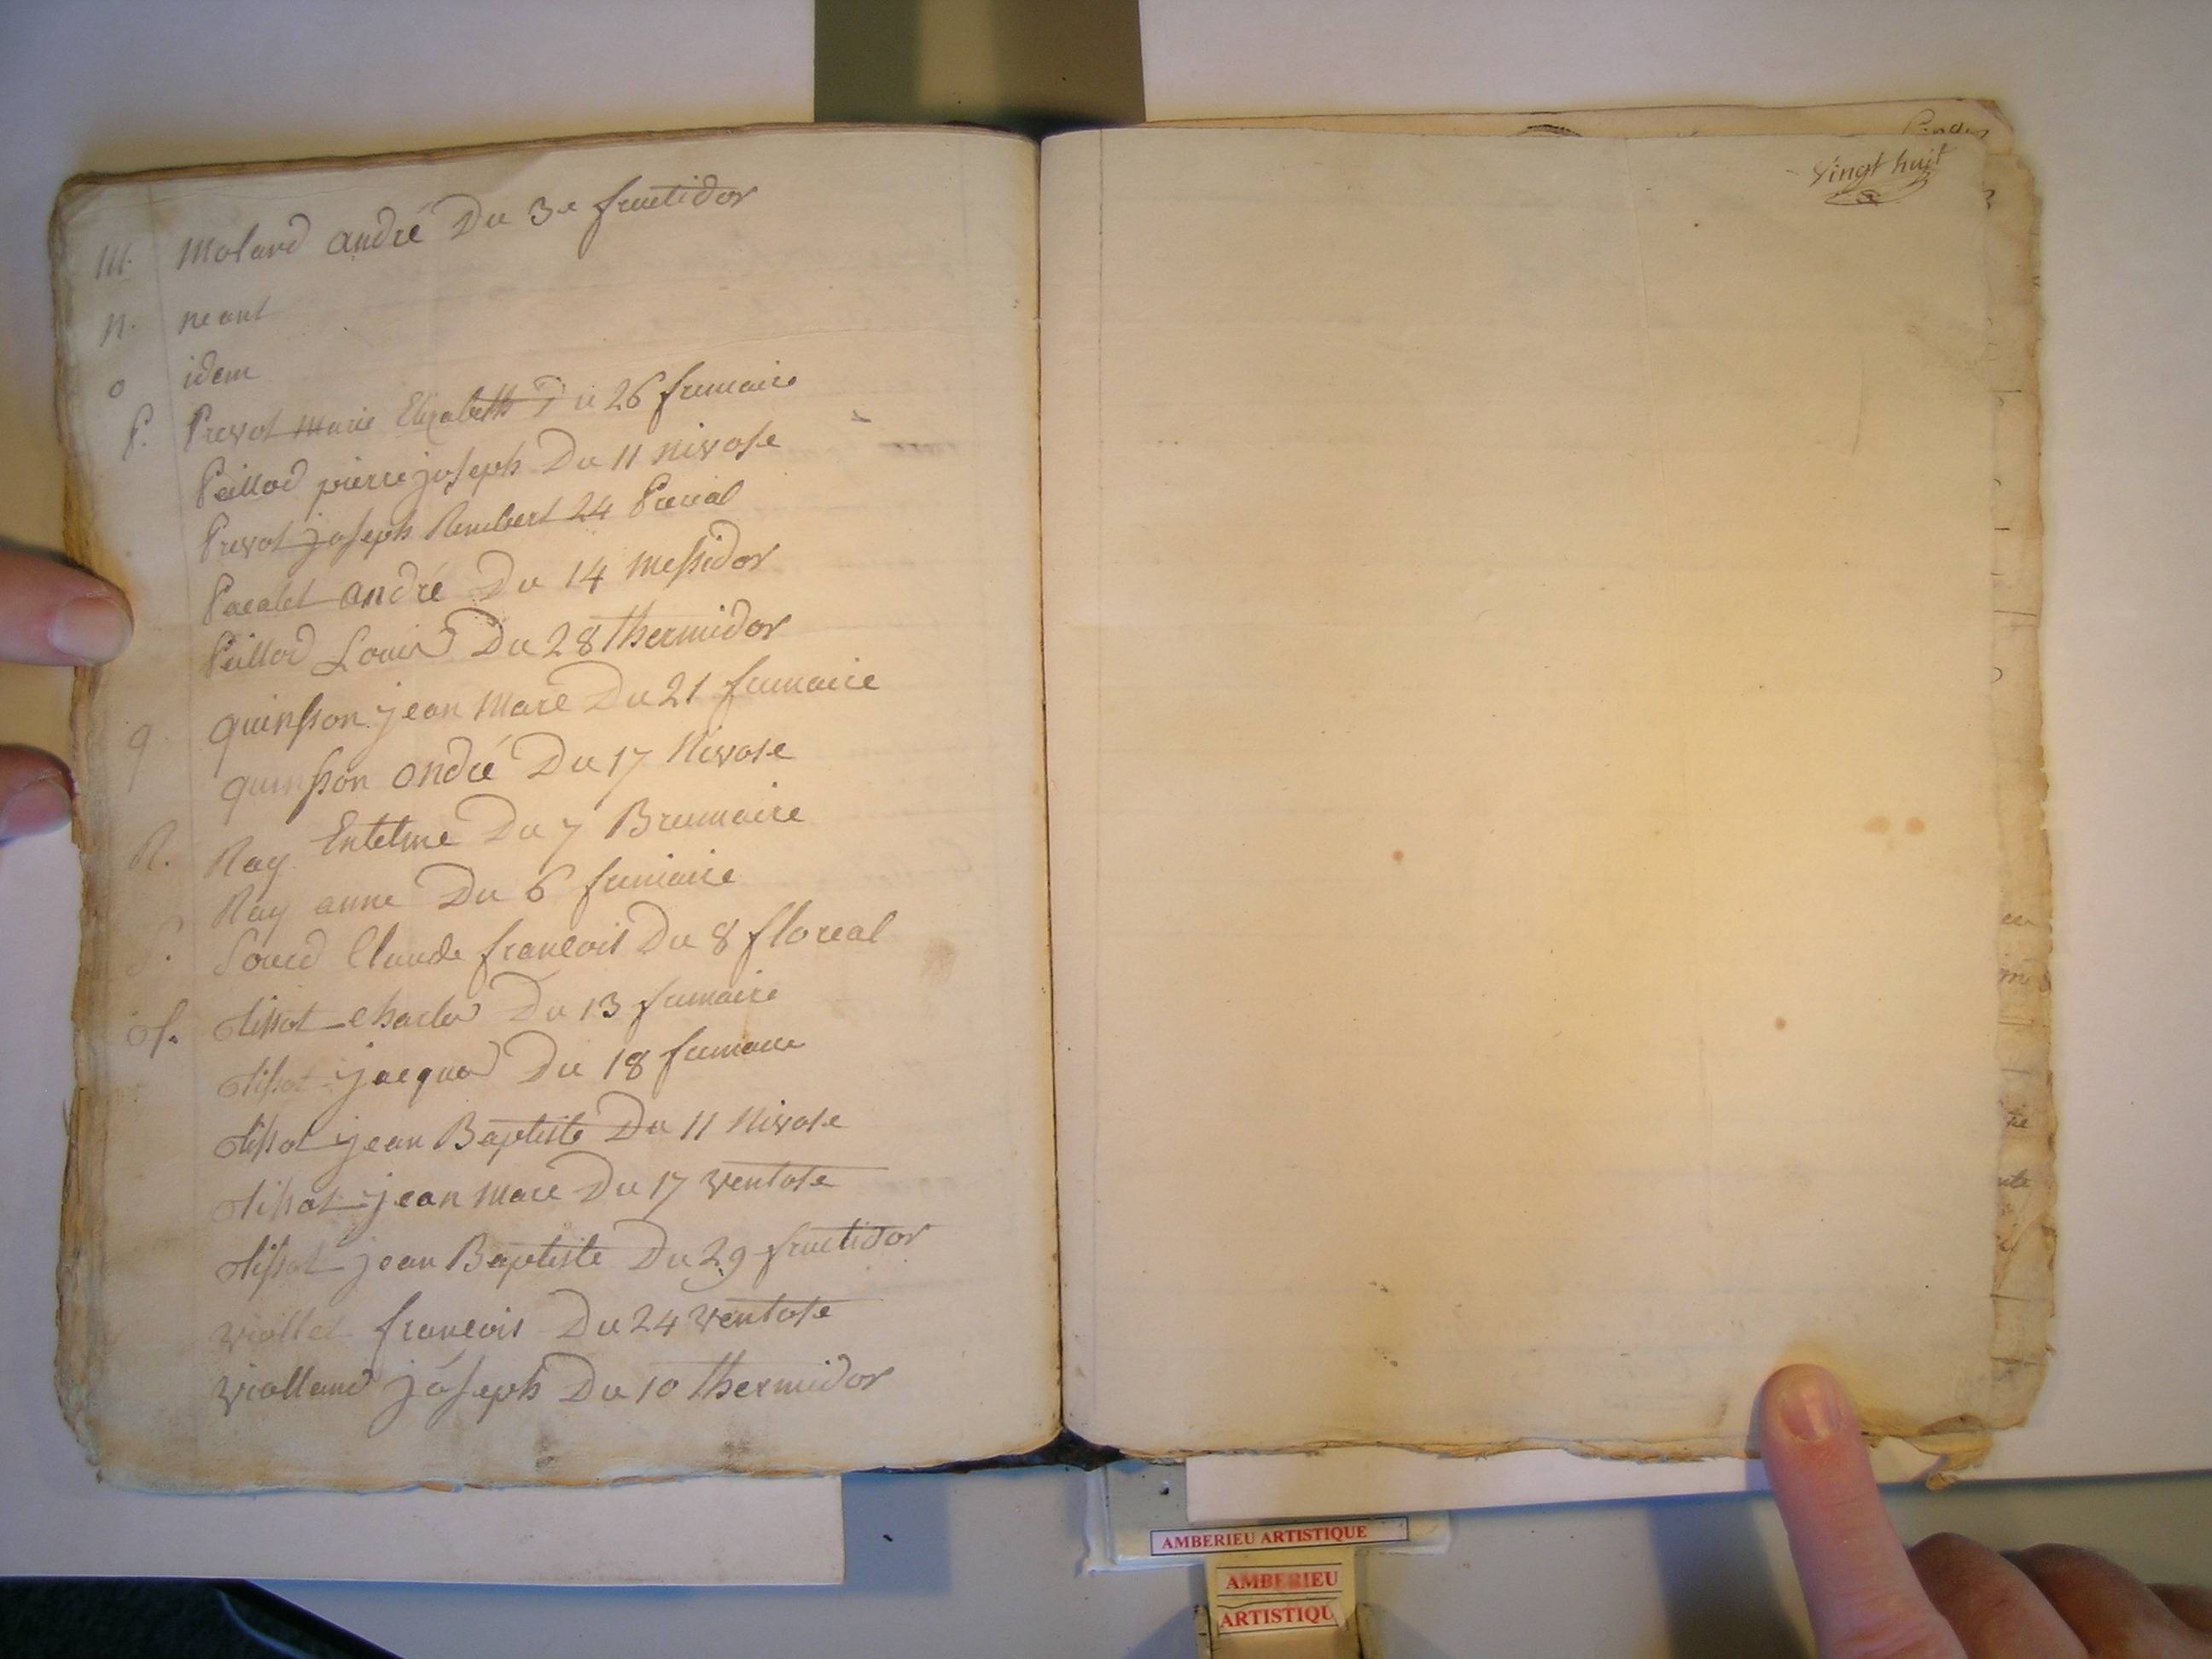 M. Molard andré Du 3e fructidor
N. neant
o idem
P. Prevot marie Elizabeth Du 26 frimaire
Peillod pierre joseph Du 11 nivose
Prevot joseph Rembert 24 Prerial
Pacalet andré Du 14 Messidor
Peillod Louis Du 28 thermidor
q. quinsson jean Marc Du 21 frimaire
quinsson andré Du 17 Nivose
R. Ray Entelme Du 7 Brumaire
Ray anne Du 6 frimaire
S. Sourd Claude francois Du 8 floreal
T. Tissot charles Du 13 frimaire
Tissot jacques Du 18 frimaire
Tissot jean Baptiste Du 11 Nivose
Tissot jean Marc Du 17 ventose
Tissot jean Baptiste Du 29 fructidor
viollet francois Du 24 ventose
violland joseph Du 10 thermidor
Vingt huit
AMBERIEU ARTISTIQUE
AMBERIEU
ARTISTIQU